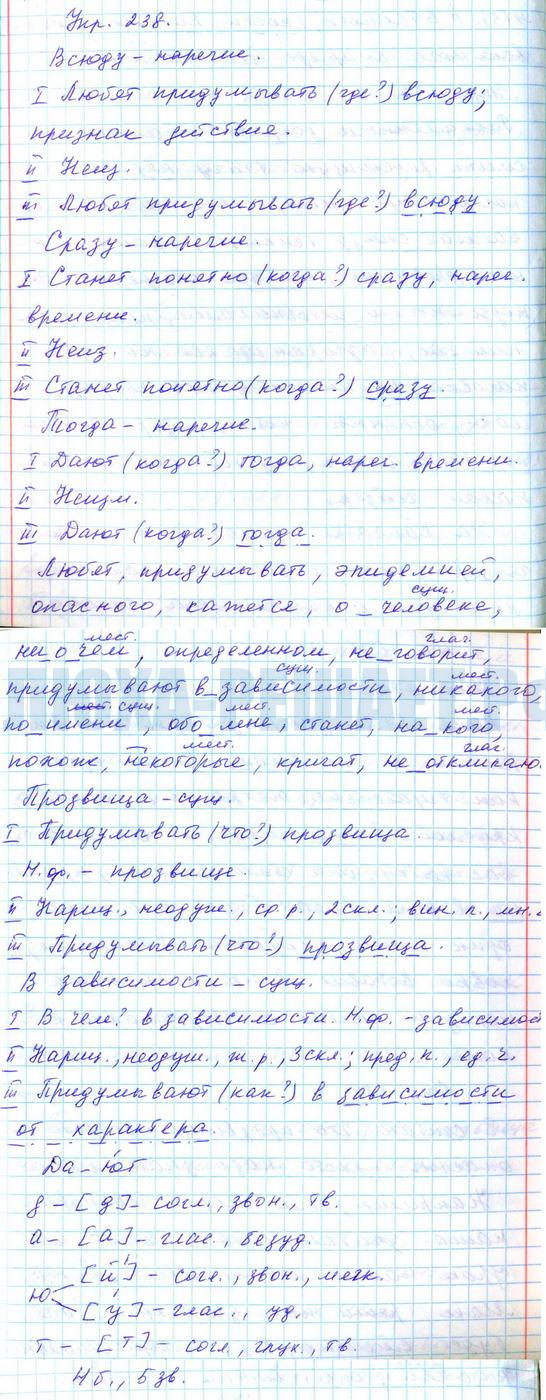 Упр. 238.
Всюду – наречие.
I Любят придумывать (где?) всюду;
признак действия.
II Неиз.
III Любят придумывать (где?) всюду.
Сразу – наречие.
I Станет понятно (когда?) сразу, нареч.
времени.
II Неиз.
III Станет понятно (когда?) сразу.
Тогда – наречие.
I Дают (когда?) тогда, нареч. времени.
II Неизм.
III Дают (когда?) тогда.
Любят, придумывать, эпидемией,
сущ.
опасного, кажется, о человеке,
мест. глаг.
ни о чём, определенном, не говорит,
сущ. мест.
придумывают в зависимости, никакого,
сущ. мест. мест.
по имени, обо мне, станет, на кого,
мест. глаг.
похож, некоторые, кричат, не откликаю
Прозвища – сущ.
I Придумывать (что?) прозвища.
Н.ф. – прозвище.
II Нариц., неодуш., ср. р., 2 скл.; вин. п., мн.
III Придумывать (что?) прозвища.
В зависимости – сущ.
I В чем? в зависимости. Н.ф. – зависимос
II Нариц., неодуш., ж. р., 3 скл.; пред. п., ед. ч.
III Придумывают (как?) в зависимости
от характера.
Да – ют
д – [д] – согл., звон., тв.
а – [а] – глас., безуд.
[й'] – согл., звон., мягк.
ю
[у́] – глас., уд.
т – [т] – согл., глух., тв.
4 б., 5 зв.